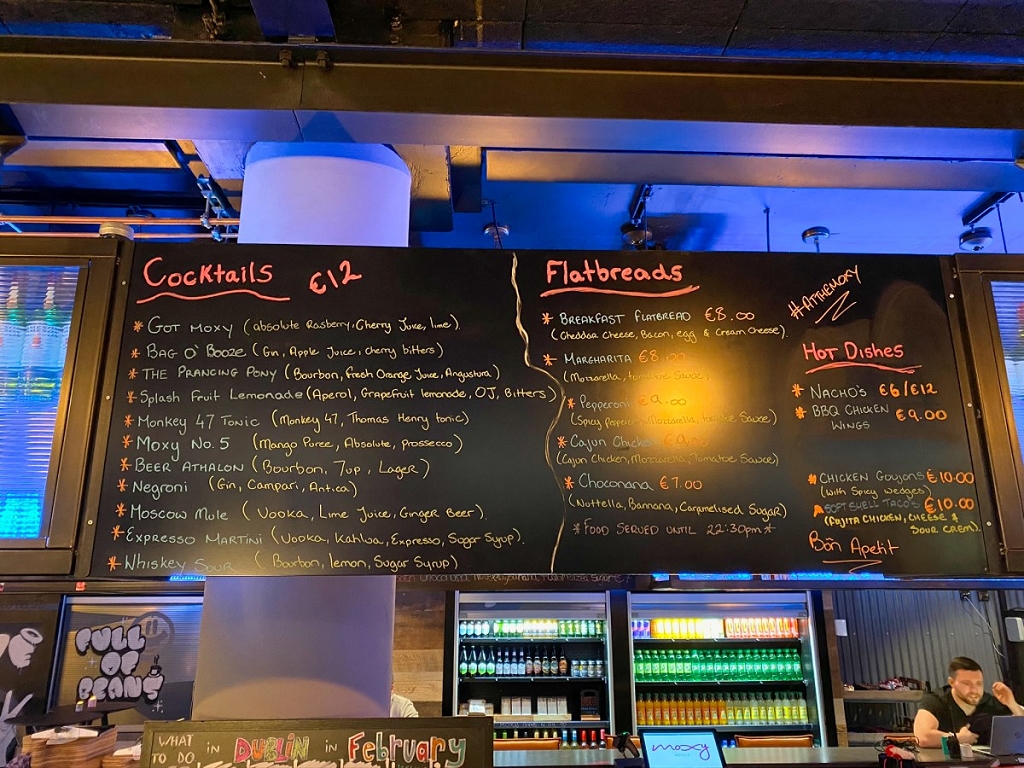 Cocktails €12
* Got Moxy (absolute Rasberry, Cherry Juice, lime)
* Bag O' Booze (Gin, Apple Juice, cherry bitters)
* The Prancing Pony (Bourbon, fresh Orange Juice, Angustura)
* Splash Fruit Lemonade (Aperol, Grapefruit lemonade, OJ, Bitters)
* Monkey 47 Tonic (Monkey 47, Thomas Henry tonic)
* Moxy No. 5 (Mango Puree, Absolute, Prossecco)
* Beer Athalon (Bourbon, 7up, Lager)
* Negroni (Gin, Campari, Antica)
* Moscow Mule (Vodka, Lime Juice, Ginger Beer)
* Expresso Martini (Vodka, Kahlua, Expresso, Sugar Syrup).
* Whiskey Sour (Bourbon, lemon, Sugar Syrup)
Flatbreads
* Breakfast Flatbread €8.00
(Cheddaa Cheese, Bacon, egg & Cream Cheese)
* Margharita €8.00
(Mozzarella, tomatoe Sauce)
* Pepperoni €9.00
(Spicy Pepperoni, Mozzarella, tomatoe Sauce)
* Cajun Chicken €9.00
(Cajun Chicken, Mozzarella, Tomatoe Sauce)
* Choconana €7.00
(Nuttella, Bannana, Caramelised Sugar)
*Food Served until 22:30pm*
#ATTHEMOXY
Hot Dishes
* Nacho's €6/€12
* BBQ Chicken Wings €9.00
* Chicken Goujons €10.00
(with Spicy wedges)
* Soft Shell Taco's €10.00
(Fajita Chicken, Cheese & Sour Cream).
Bön Apetit
FULL
OF
BEANS
WHAT TO DO in DUBLIN in February
moxy